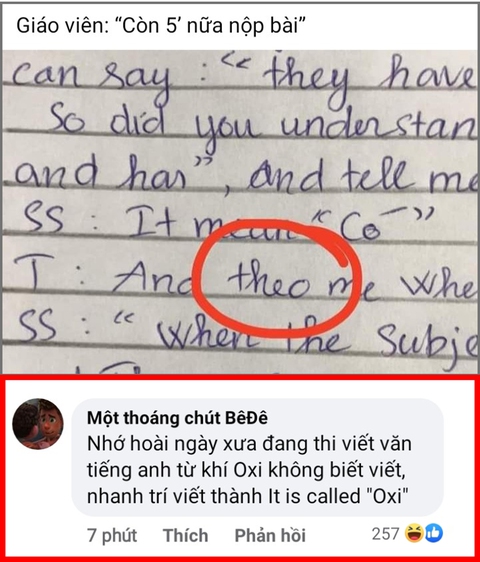 Giáo viên: “Còn 5’ nữa nộp bài”
can say : “they have
So did you understan
and has”, And tell me
SS : It mean “Có”
T : And theo me whe
SS : “ When the Subje
Một thoáng chút BêĐê
Nhớ hoài ngày xưa đang thi viết văn
tiếng anh từ khí Oxi không biết viết,
nhanh trí viết thành It is called "Oxi"
7 phút Thích Phản hồi 257